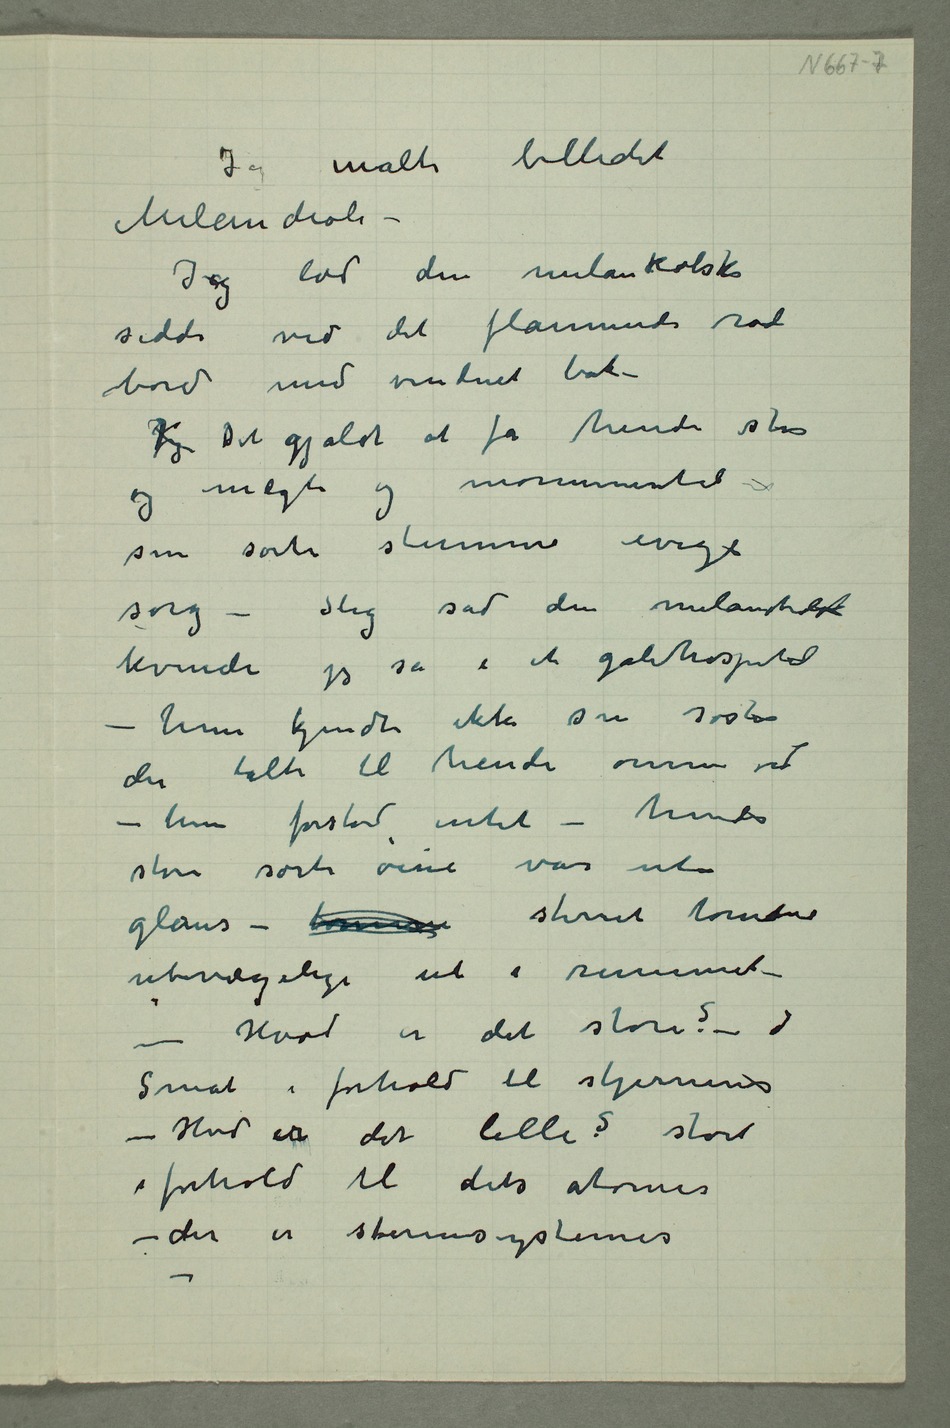 N667-7
Jeg malte billedet
Melancholi –
Jeg lod den melankolske
sidde ved det flammende røde
bord med vinduet bak –
Det gjaldt at få hende stor
og mægtig og monumental –
sin sorte stumme evige
sorg – Slig sad den melancholske
kvinde jeg så i et galehospital
– hun kjendte ikke sin søster
der talte til hende ømme ord
– hun forstod intet – hendes
store sorte øine var uten
glans – stirret tomme
ubevægelige ut i rummet –
– Hvad er det store? –
Småt i forhold til stjernernes
– Hvad er det lille? stort
i forhold til dets atomer
– der er sternesystemer
–